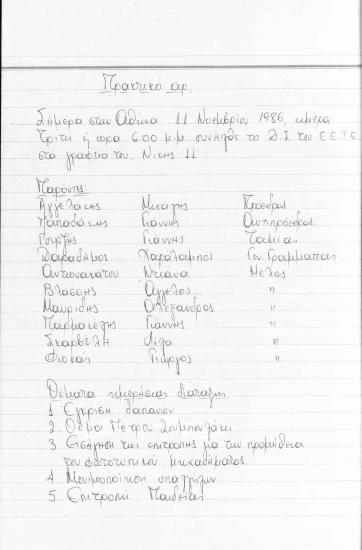 Πρακτικό αρ.
Σήμερα στην Αθήνα 11 Νοεμβρίου 1986, ημέρα
Τρίτη ή ώρα 6.00 μ.μ. συνήλθε το Δ.Σ του Ε.Ε.Τ.Ε
στα γραφεία του, Νίκης 11
Παρόντες:
Αγγελάκης Μιχάλης Πρόεδρος
Παπαδάκης Γιάννης Αντιπρόεδρος
Γουρζής Γιάννης Ταμίας
Δαραδήμος Χαράλαμπος Γεν. Γραμματέας
Αντωνακάτου Ντιάνα Μέλος
Βλάσσης Άγγελος "
Μαυρίδης Αλέξανδρος "
Παρμακέλης Γιάννης "
Σταρβέλη Λίζα "
Φωκάς Γιώργος "
Θέματα ημερήσιας διάταξης
1. Έγκριση δαπανών
2. Θέμα Πέτρου Ζουμπουλάκη
3. Εισήγηση της επιτροπής για την προμήθεια
του φωτοτυπικού μηχανήματος.
4. Μονιμοποίηση υπαλλήλων
5. Επιτροπή Παιδείας